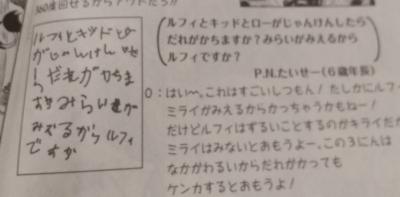 360度回せるからアウトだっ!!
ルフィとキッドとロー
がじゃんけんした
らだれがかちま
すかみらいが
みえるからルフィ
ですか
ルフィとキッドとローがじゃんけんしたら
だれがかちますか?みらいがみえるから
ルフィですか?
P.N.たいせー(6歳年長)
O:はい〜。これはすごいしつもん! たしかにルフィ
ミライがみえるからかっちゃうかもねー!
だけどルフィはずるいことするのがキライだか
ミライはみないとおもうよー。この3にんは
なかがわるいからだれがかっても
ケンカするとおもうよ!